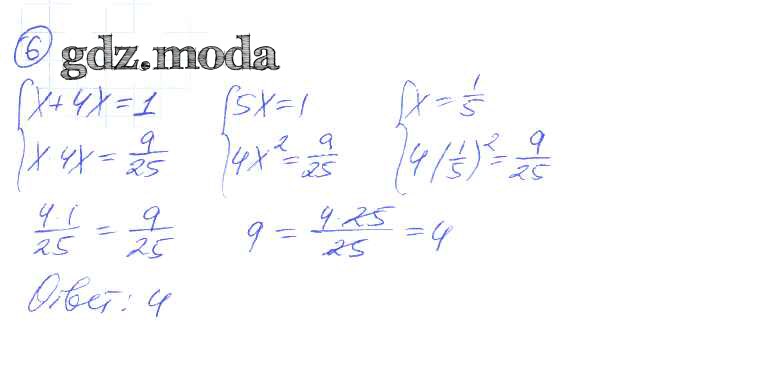 6 gdz.moda
{ x + 4x = 1 { 5x = 1 { x = 1/5
{ x · 4x = 9/25 { 4x² = 9/25 { 4(1/5)² = 9/25
4·1/25 = 9/25 9 = 4·25/25 = 4
Ответ: 4